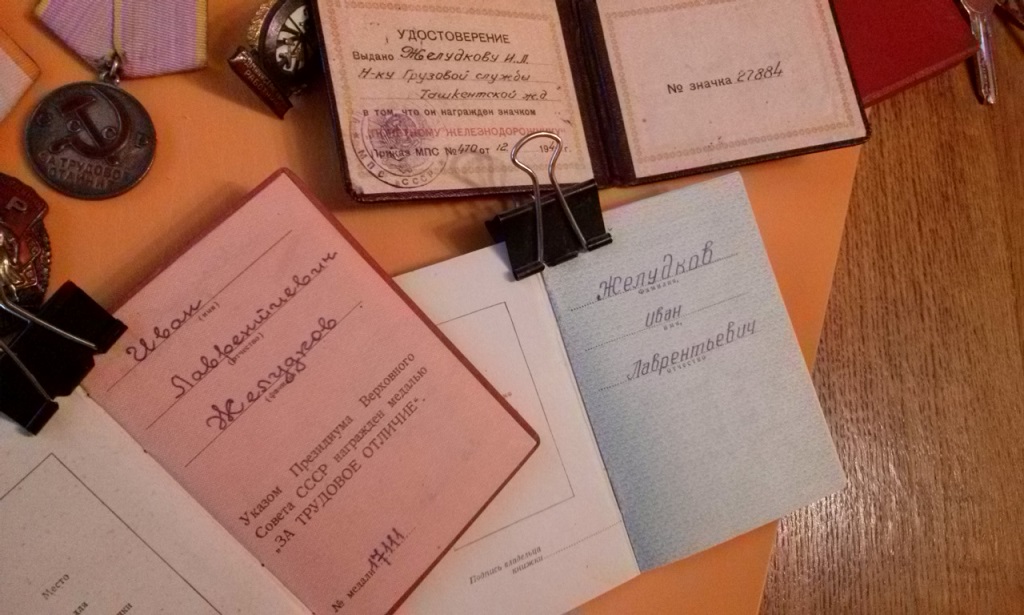 УДОСТОВЕРЕНИЕ
Выдано Желудкову И.Л.
Н-ку Грузовой службы
Ташкентской ж.д.
в том, что он награжден значком
ПОЧЕТНОМУ ЖЕЛЕЗНОДОРОЖНИКУ
Приказ МПС № 470 от 12 194 г.
МПС СССР
№ значка 27884
ЗА ТРУДОВОЕ
ОТЛИЧИЕ
Р
Иван
(имя)
Лаврентиевич
(отчество)
Желудков
Указом Президиума Верховного
Совета СССР награжден медалью
„ЗА ТРУДОВОЕ ОТЛИЧИЕ".
№ медали 17111
Место
Желудков
Фамилия,
Иван
имя,
Лаврентьевич
отчество
Подпись владельца
книжки